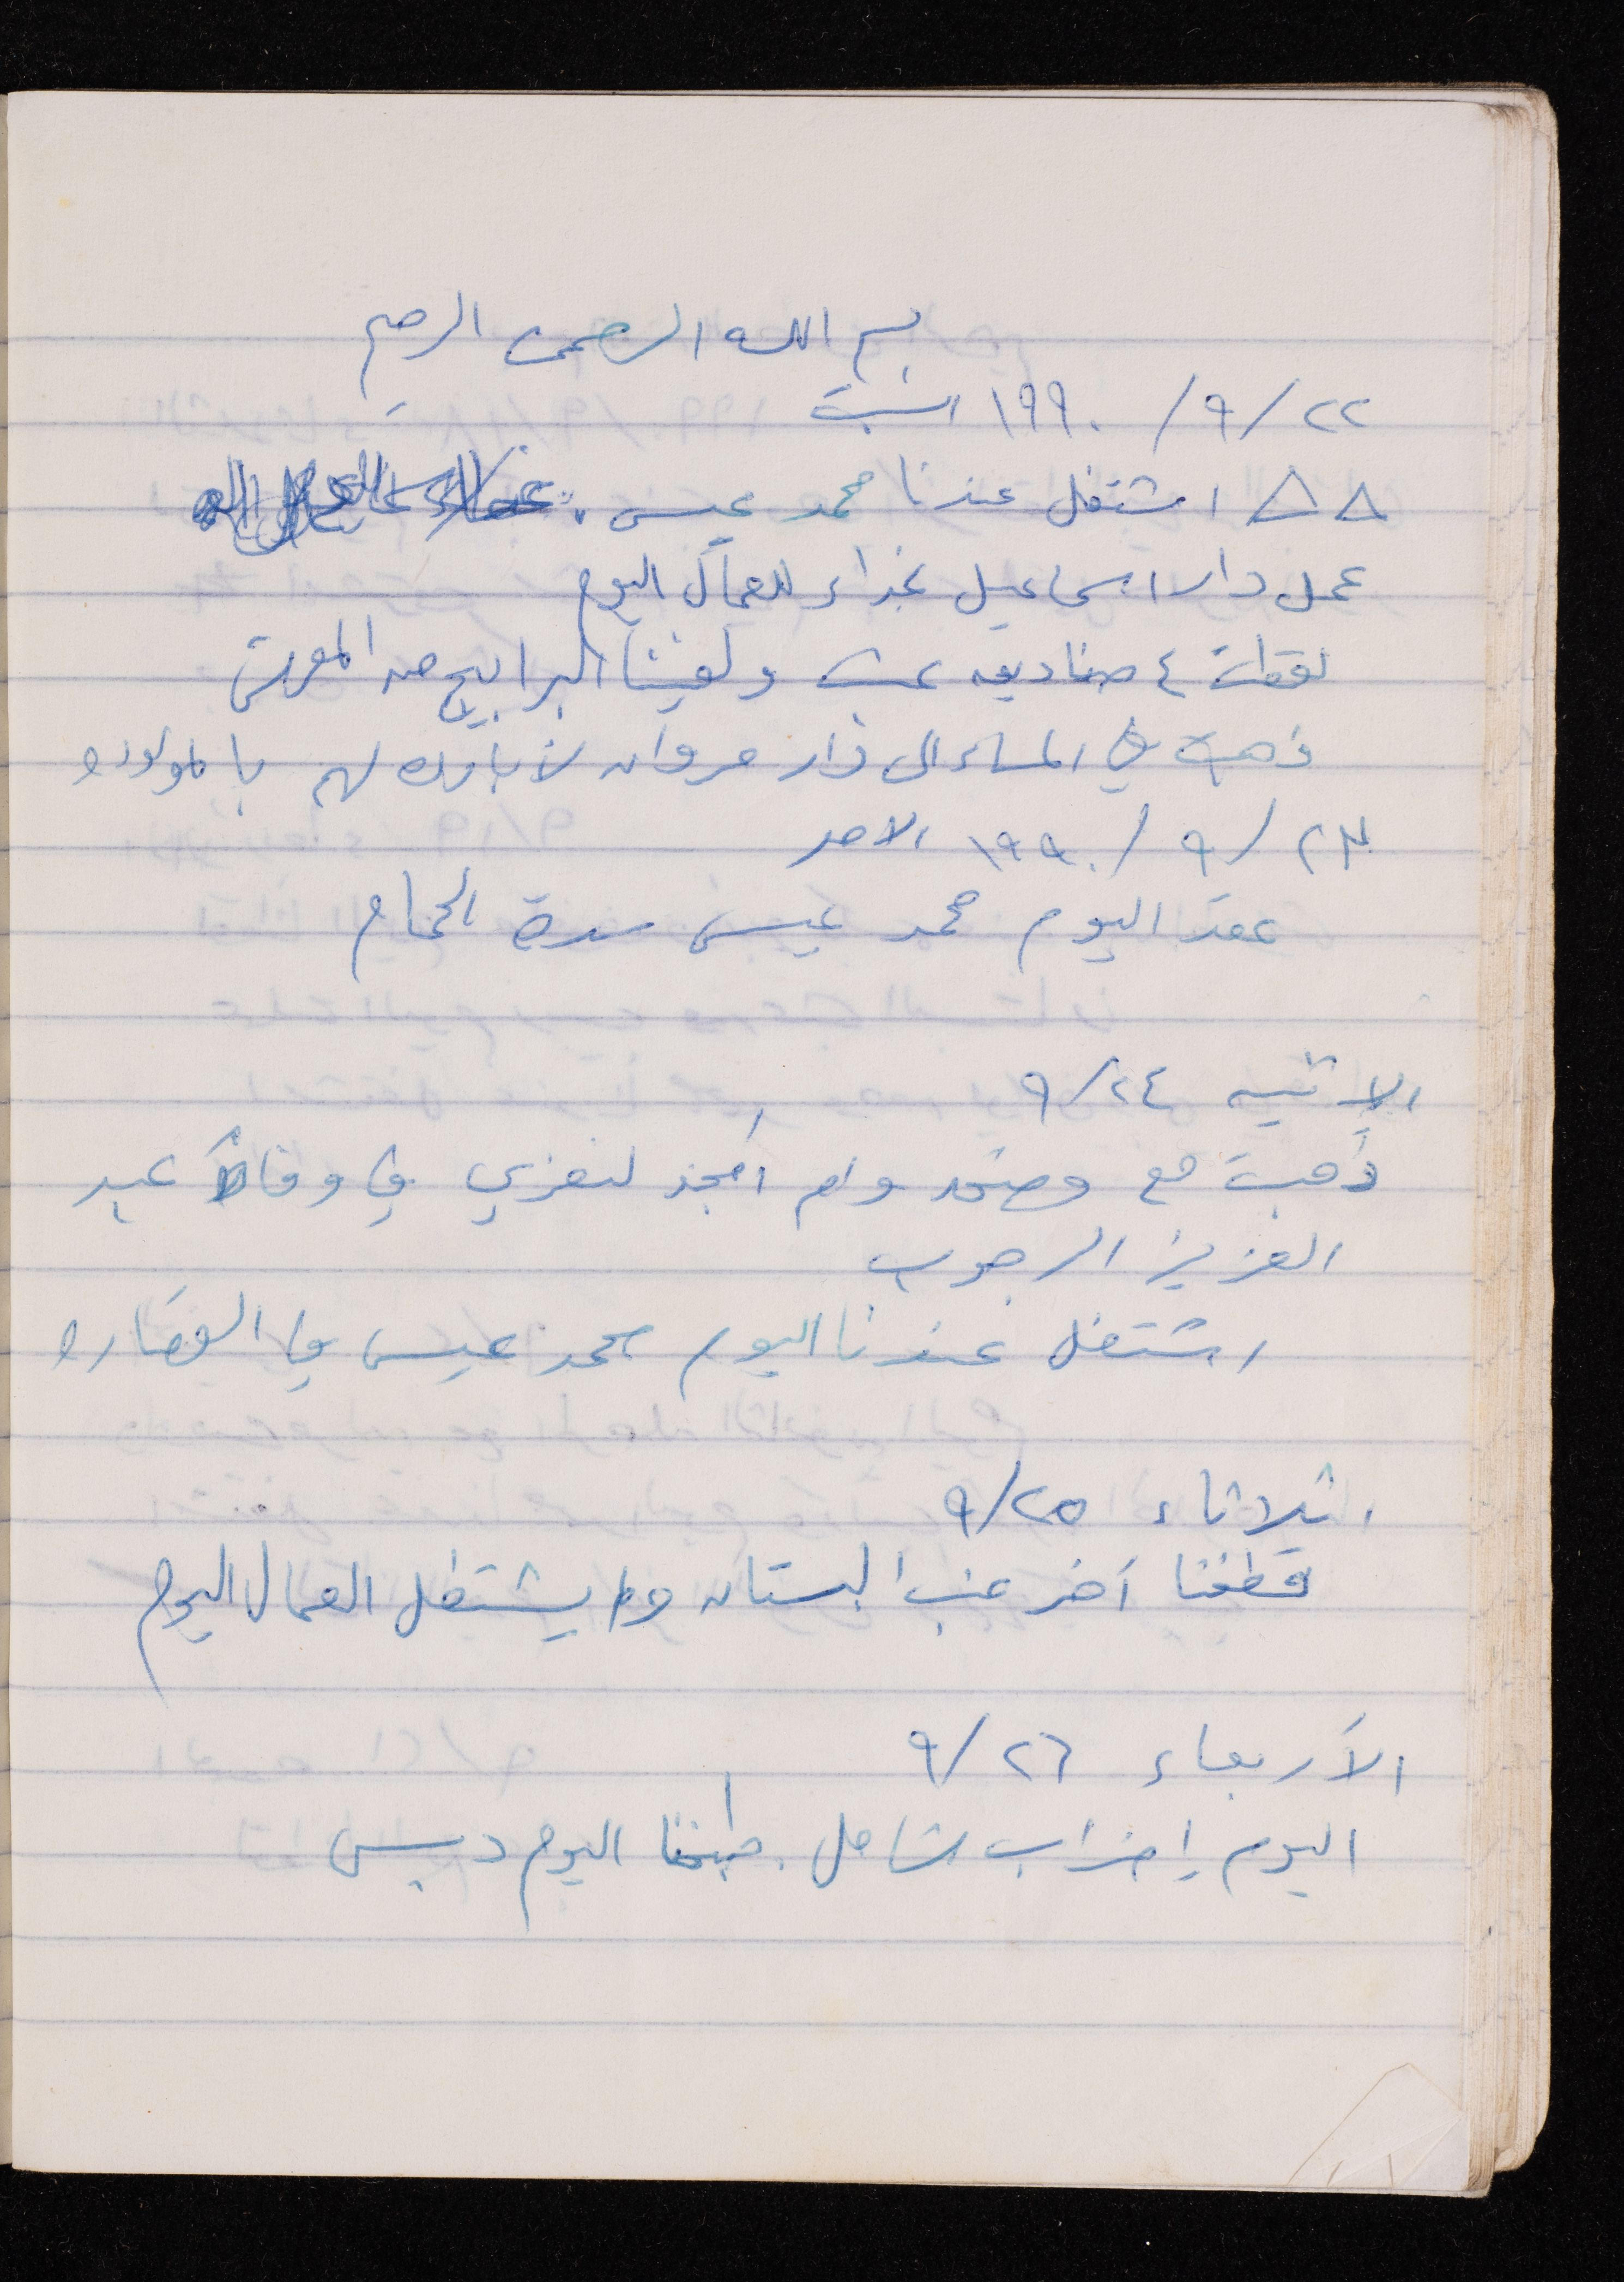 بسم الله الرحمن الرحيم
٢٢/ ٩/ ١٩٩٠ السبت
△△ اشتغل عندنا محمد عيسى .
عمل دار اسماعيل غداء للعمال اليوم
لقطت ٤ صناديق عنب ولفينا البرابيج من المعرش
ذهبت في المساء الى دار مروان لأبارك لهم بالمولوده
٢٣/ ٩/ ١٩٩٠ الاحد
عقد اليوم محمد عيسى سدة الحمام
الإثنين ٩/٢٤
ذهبت مع وام امجد لنعزي في وفاة عبد
العزيز الرجوب
اشتغل عندنا اليوم محمد عيسى في القصاره
الثلاثاء ٩/٢٥
قطفنا آخر عنب البستان ولم يشتغل العمال اليوم
الأربعاء ٩/٢٦
اليوم إضراب شامل . طبخنا اليوم دبس